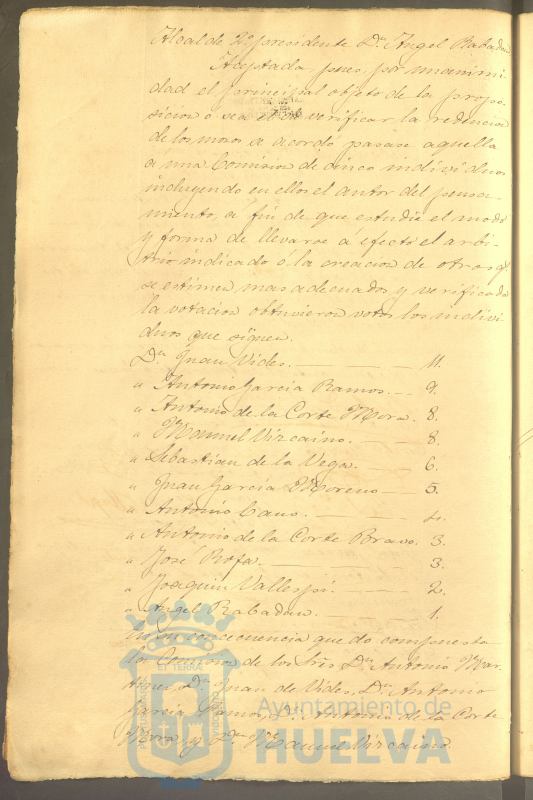 Alcalde 2º presidente Dn Angel Rabadan
Aceptada pues, por unanimi-
dad el principal objeto de la propo-
sicion ó sea el de verificar la redencion
de los mozos se acordó pasase aquella
a una Comision de cinco individuos
incluyendo en ellos el autor del pensa-
miento, á fin de que estudie el modo
y forma de llevarse á efecto el arbi-
trio indicado ó la creacion de otros q.
se estimen mas adecuados y verificada
la votacion obtuvieron votos los indivi-
duos que siguen.
Dn Juan Vides. 11.
" Antonio Garcia Ramos. 9.
" Antonio de la Corte Mora. 8.
" Manuel Vizcaino. 8.
" Sebastian de la Vega. 6.
" Juan Garcia Moreno 5.
" Antonio Cano. 4.
" Antonio de la Corte Bravo. 3.
" José Rofa. 3.
" Joaquin Vallespí. 2.
" Angel Rabadan. 1.
en consecuencia quedó compuesta
la Comision de los Sres Dn Antonio Mar-
tinez, Dn Juan de Vides, Dn Antonio
Garcia Ramos, Dn Antonio de la Corte
Mora y Dn Manuel Vizcaino.
Ayuntamiento de
HUELVA